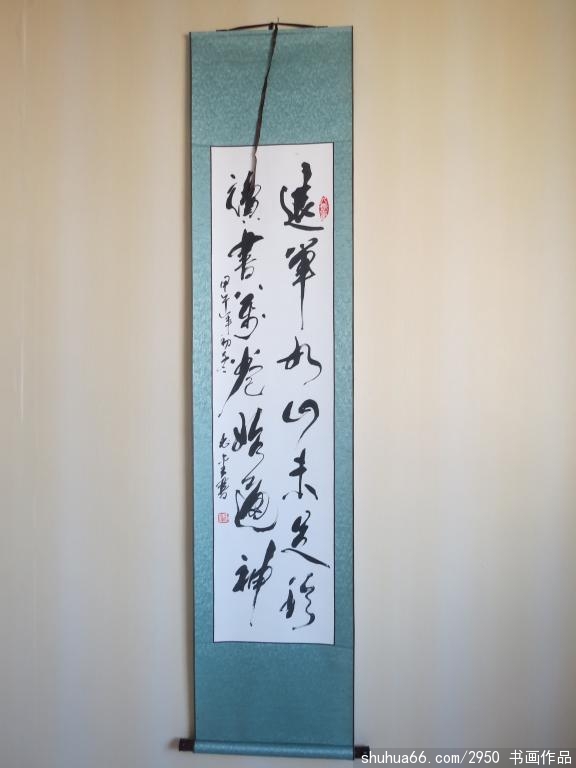 遠筆如山未足珍
讀書萬卷始通神
甲午年初冬
書
shuhua66.com/2950 书画作品